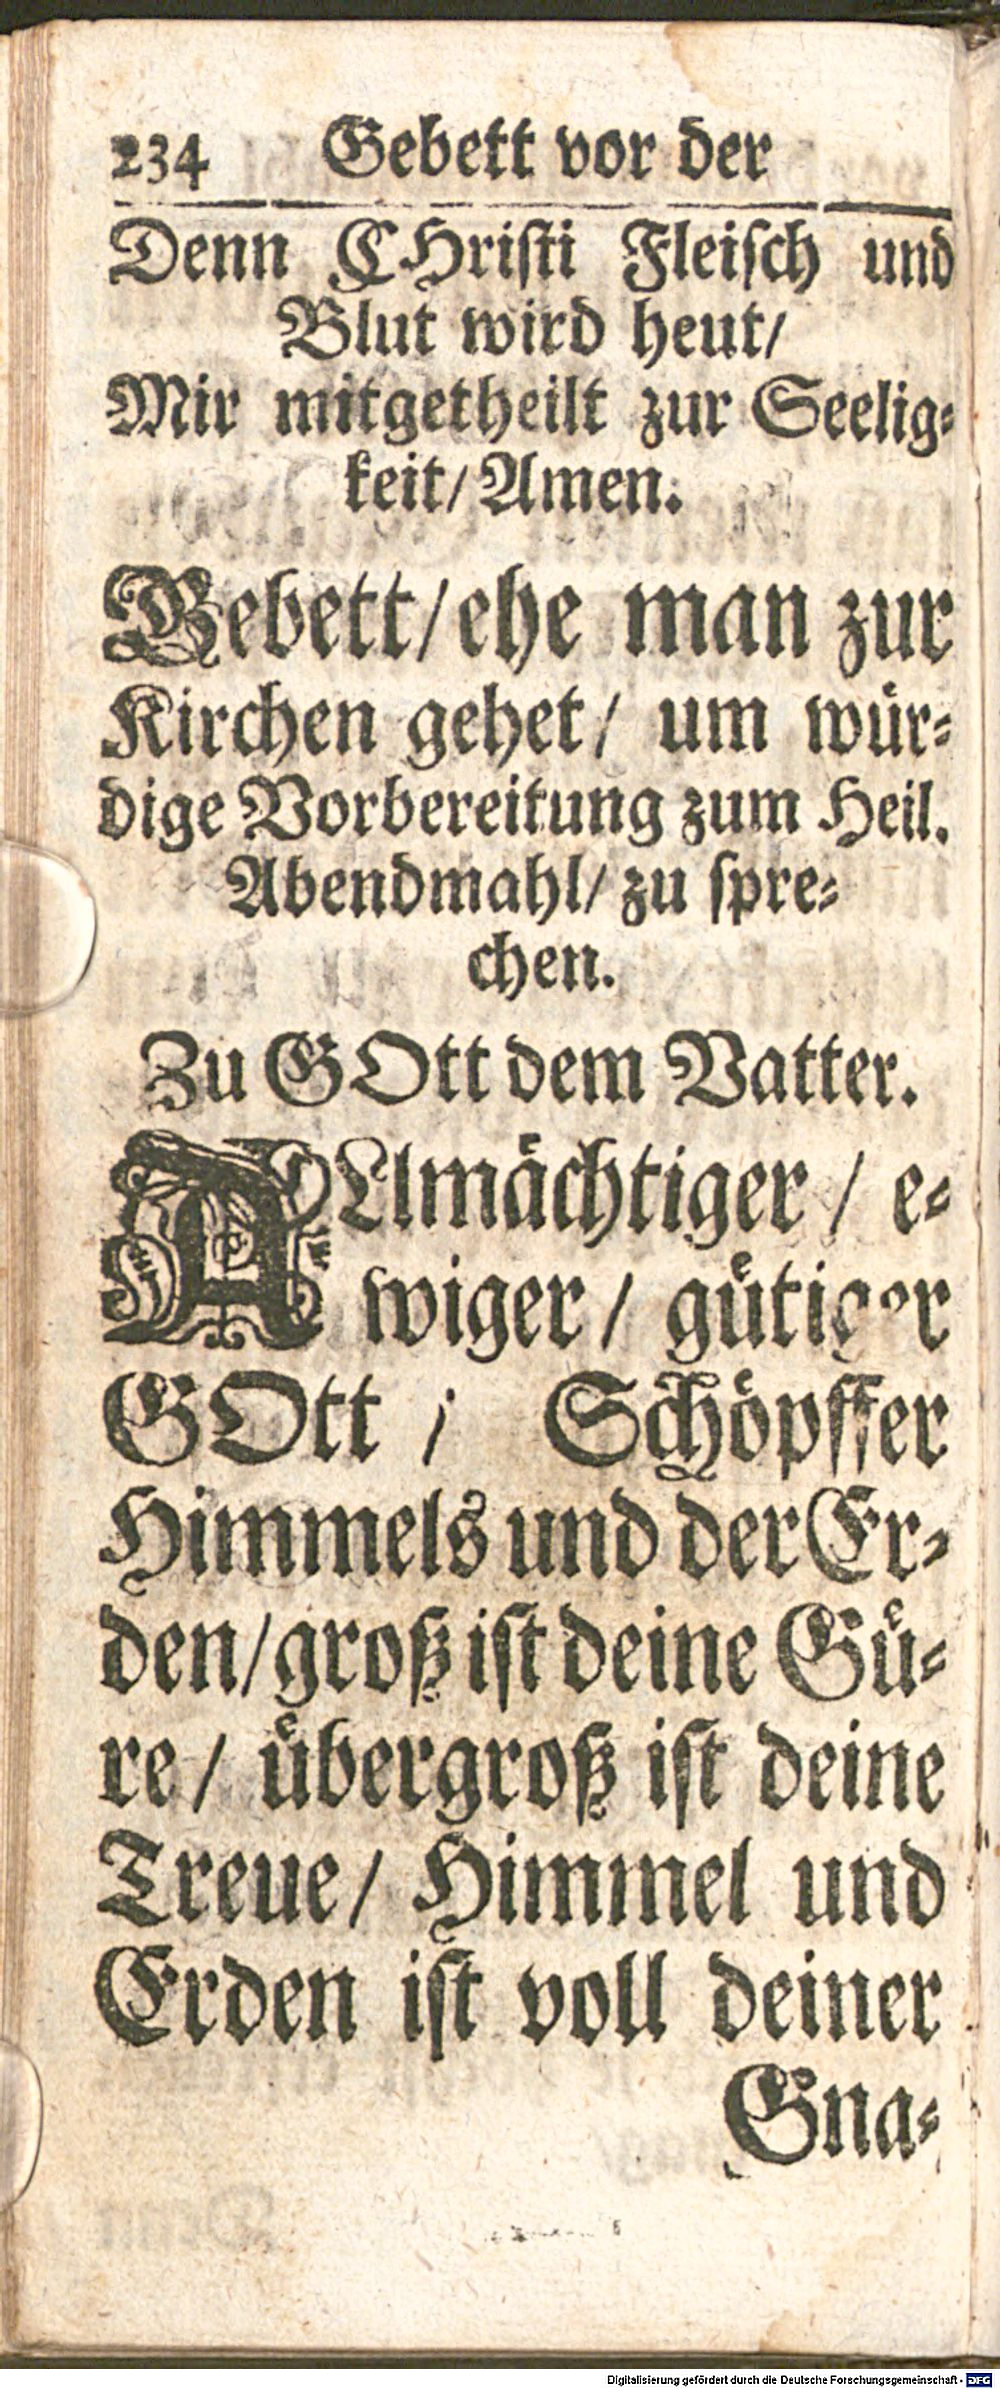 234 Gebett vor der
Denn CHriſti Fleiſch und
Blut wird heut/
Mir mitgetheilt zur Seelig⸗
keit/ Amen.
Gebett/ ehe man zur
Kirchen gehet/ um wuͤr⸗
dige Vorbereitung zum Heil.
Abendmahl/ zu ſpre⸗
chen.
Zu GOtt dem Vatter.
ALlmaͤchtiger / e⸗
wiger / guͤtiger
GOtt / Schoͤpffer
Himmels und der Er⸗
den/ groß iſt deine Guͤ⸗
te/ uͤbergroß iſt deine
Treue/ Himmel und
Erden iſt voll deiner
Gna⸗
Digitalisierung gefördert durch die Deutsche Forschungsgemeinschaft - DFG